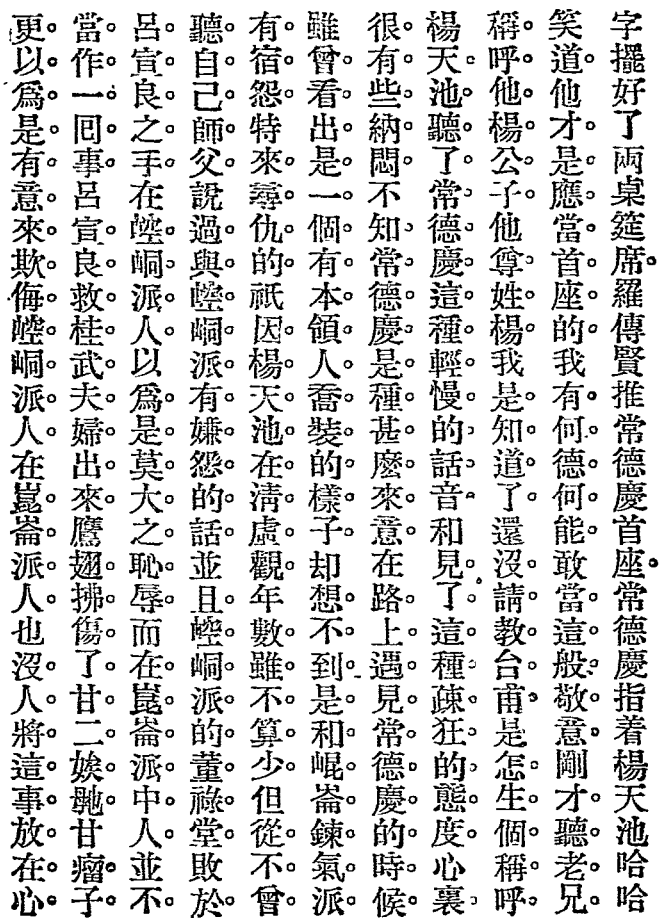 字擺好了兩桌筵席。羅傳賢推常德慶首座。常德慶指着楊天池哈哈
笑道他才是應當首座的我有何德何能敢當這般敬意剛才聽老兄
稱呼他楊公子他尊姓楊我是知道了還沒請教台甫是怎生個稱呼
楊天池聽了常德慶這種輕慢的話音和見了這種疎狂的態度心裏
很有些納悶不知常德慶是種甚麽來意在路上遇見常德慶的時候
雖曾看出是一個有本領人喬裝的樣子却想不到是和崐崙鍊氣派
有宿怨特來尋仇的祇因楊天池在淸虛觀年數雖不算少但從不曾
聽自己師父說過與崆峒派有嫌怨的話並且崆峒派的董祿堂敗於
呂宣良之手在崆峒派人以爲是莫大之恥辱而在崑崙派中人並不
當作一囘事呂宣良救桂武夫婦出來鷹翅拂傷了甘二娭毑甘瘤子
更以爲是有意來欺侮崆峒派人在崑崙派人也沒人將這事放在心